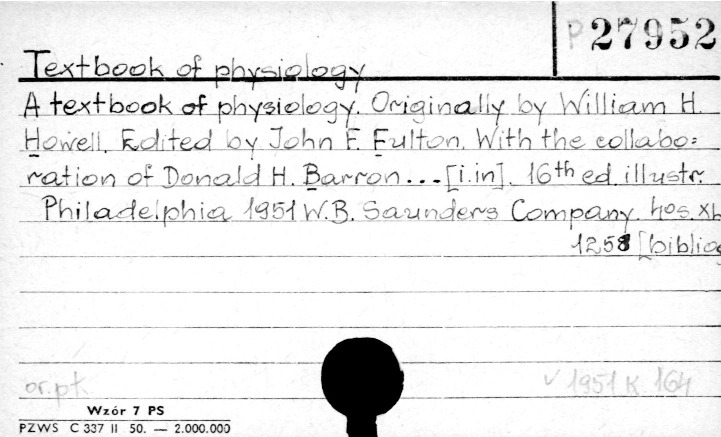 P 27952
Textbook of physiology
A textbook of physiology. Originally by William H.
Howell. Edited by John F. Fulton. With the collabo=
ration of Donald H. Barron... [i.in]. 16th ed. illustr.
Philadelphia 1951 W.B. Saunders Company.
1258 [bibliog
or. pk
v 1951 K. 164
Wzór 7 PS
PZWS C 337 II 50. — 2.000.000